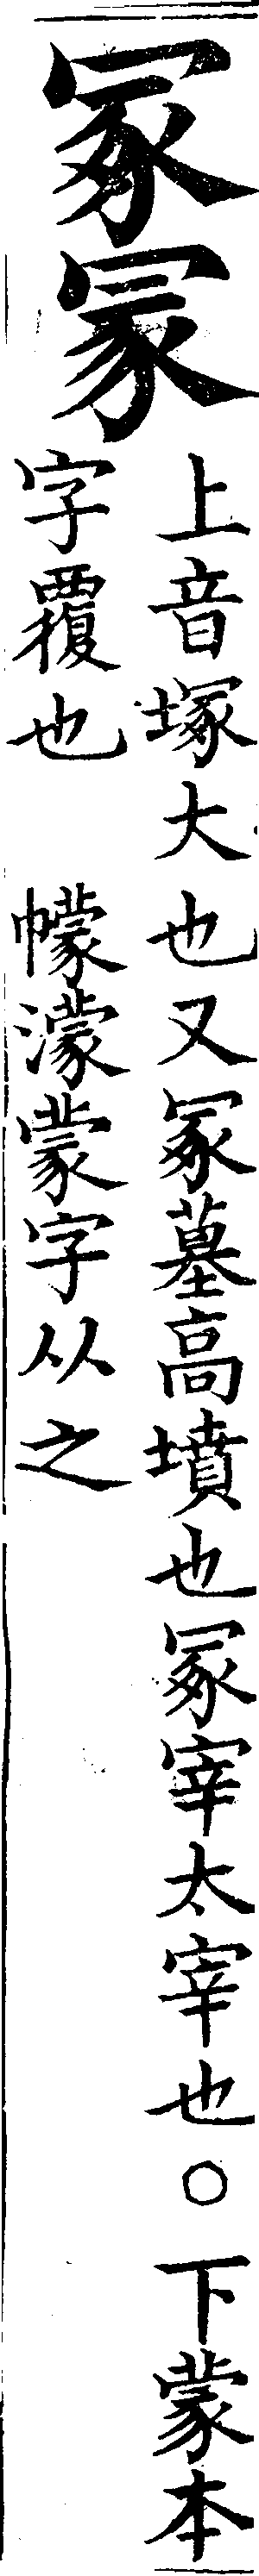 冢冡
上音塚大也又冢墓高墳也冢宰太宰也○下蒙本
字覆也　幪濛蒙字从之